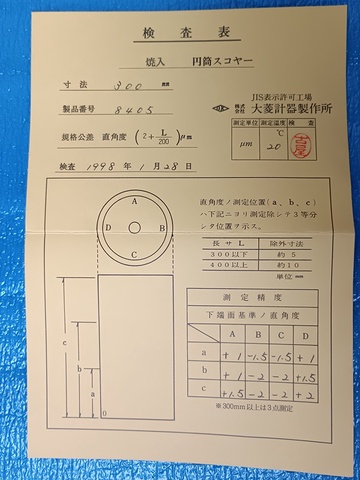 検査表
焼入 円筒スコヤー
寸法 300 mm
製品番号 8405
規格公差 直角度 (2+L/200)μm
検査 1998年1月28日
JIS表示許可工場
株式会社 大菱計器製作所
測定単位 測定温度 検査
μm 20℃ 古屋
直角度ノ測定位置(a、b、c)
ハ下記ニヨリ測定除シテ3等分
シタ位置ヲ示ス。
長サL 除外寸法
300以下 約5
400以上 約10
単位mm
A
D B
C
c
b
a
0
測定精度
下端面基準ノ直角度
A B C D
a +1 -1.5 -1.5 +1
b +1 -2 -2 +1.5
c +1.5 -2 -2 +2
※300mm以上は3点測定